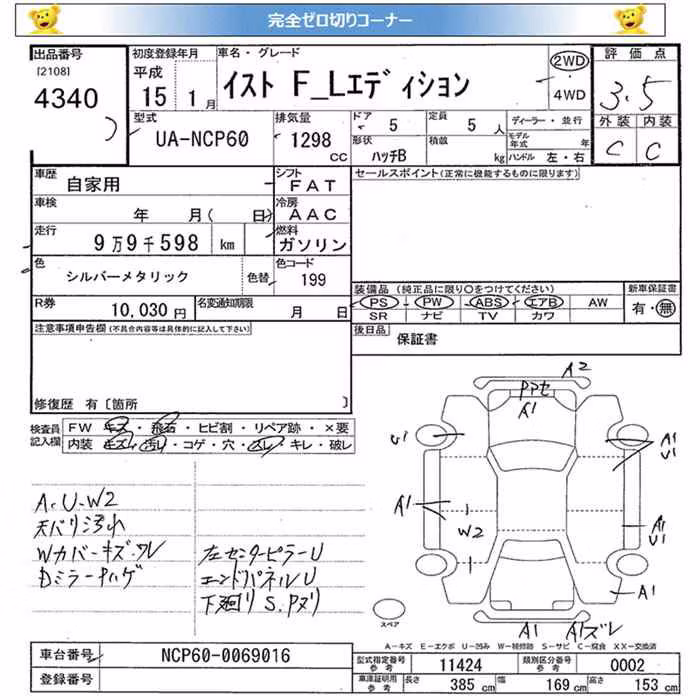 完全ゼロ切りコーナー
出品番号
[2108]
4340
初度登録年月
平成
15年 1月
車名・グレード
イスト F_Lエディション
2WD
・
4WD
評価点
3.5
外装 内装
C C
型式
UA-NCP60
排気量
1298
CC
ドア
5
定員
5人
ディーラー・並行
形状
ハッチB
積載
kg
モデル年式 年
ハンドル 左・右
車歴
自家用
シフト
FAT
車検
年 月( 日)
冷房
AAC
走行
9万9千598 km
燃料
ガソリン
色
シルバーメタリック
色替
色コード
199
R券
10,030円
名変通知期限
月 日
セールスポイント(正常に機能するものに限ります)
装備品 (純正品に限り〇をつけてください)
新車保証書
PS PW ABS エアB AW
SR ナビ TV カワ
有・無
後日品
保証書
注意事項申告欄(不具合内容等は具体的に記入して下さい)
修復歴 有〔箇所 〕
検査員記入欄
FW キズ・飛石・ヒビ割・リペア跡・×要
内装 キズ・汚れ・コゲ・穴・スレ・キレ・破レ
A.U-W2
天バリ汚れ
Wカバーキズ・ワレ
Dミラーハゲ
左センターピラーU
エンドパネルU
下廻りS.Pヌリ
A2
A1
U1
A1
U1
A1
W2
A1
U1
A1
A1
A1ズレ
スペア
A-キズ E-エクボ U-凹み W-補修跡 S-サビ C-腐食 XX-交換済
車台番号
NCP60-0069016
登録番号
型式指定番号
参考
11424
類別区分番号
参考
0002
車庫証明用
参考
長さ
385 cm
幅
169 cm
高さ
153 cm